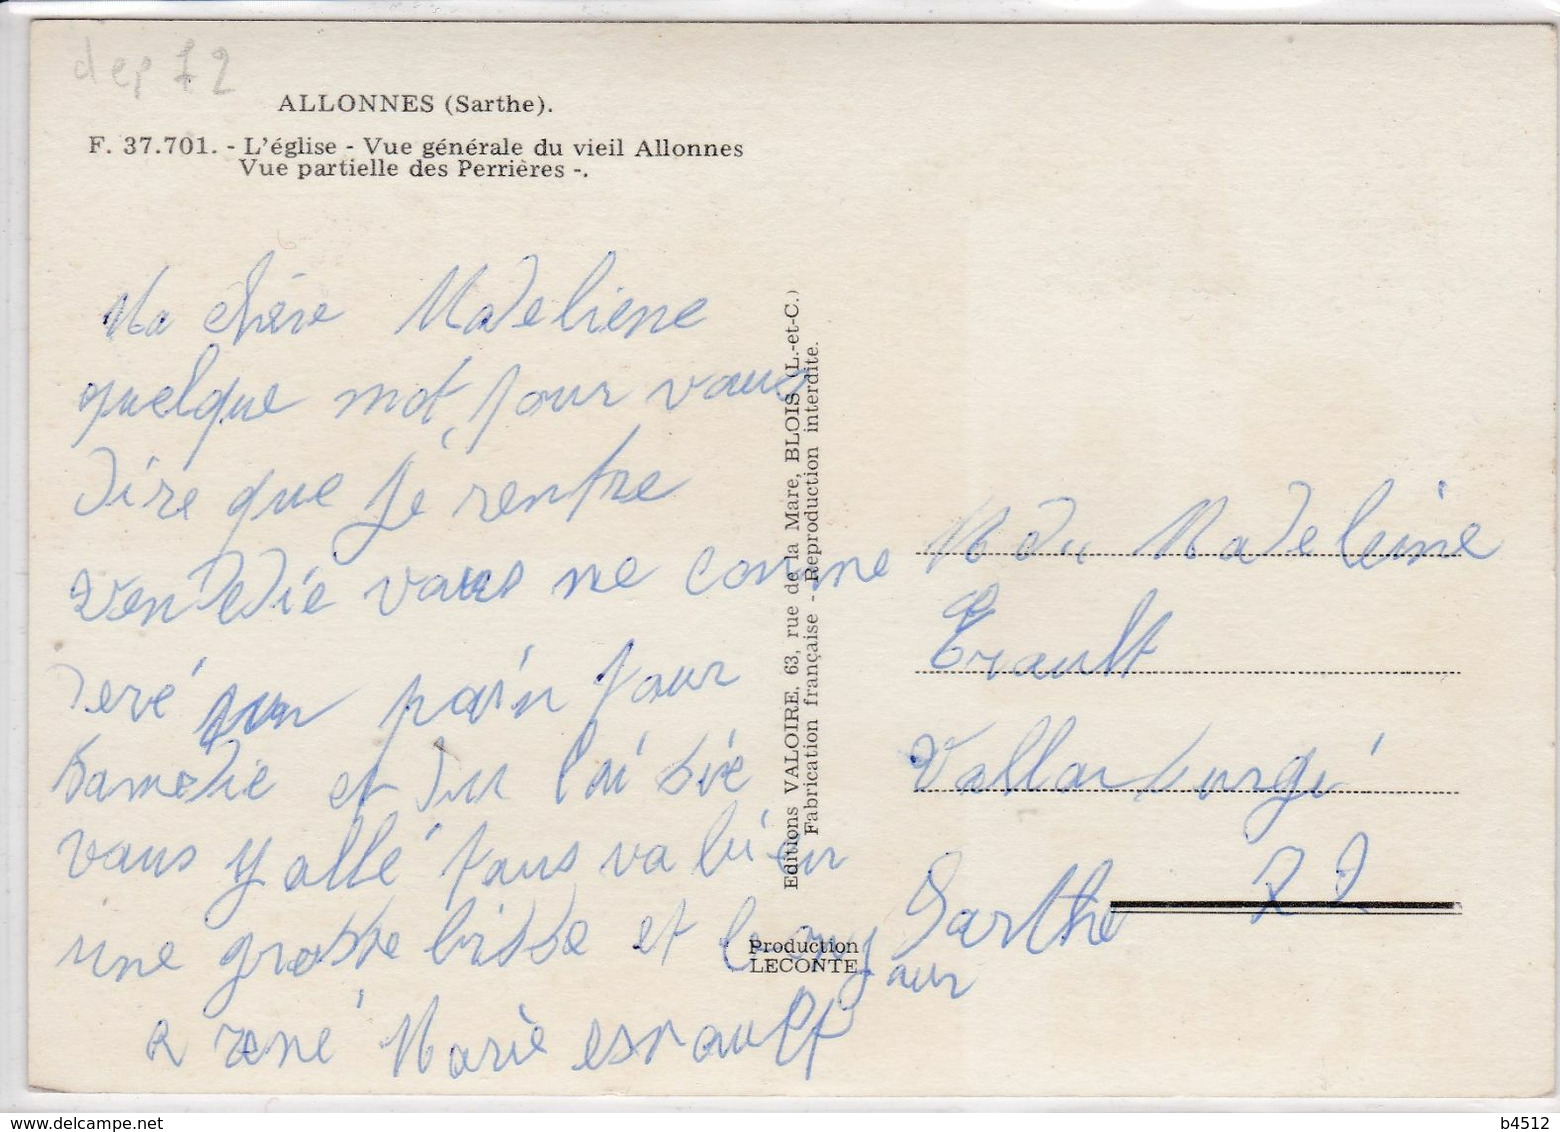 dep 72
ALLONNES (Sarthe).
F. 37.701. - L'église - Vue générale du vieil Allonnes
Vue partielle des Perrières -.
Ma chère Madeliene
quelque mot pour vous
dire que je rentre
vendedie vous me comme
deré un pain pour
Samedie et du lai sie
vous y allé tous va bien
une grosse bisse et bonjour
a rené Marie esnault
Editions VALOIRE, 63, rue de la Mare, BLOIS (L.-et-C.)
Fabrication française - Reproduction interdite.
Production
LECONTE
Madeleine
Erault
Sarthe 72
b4512